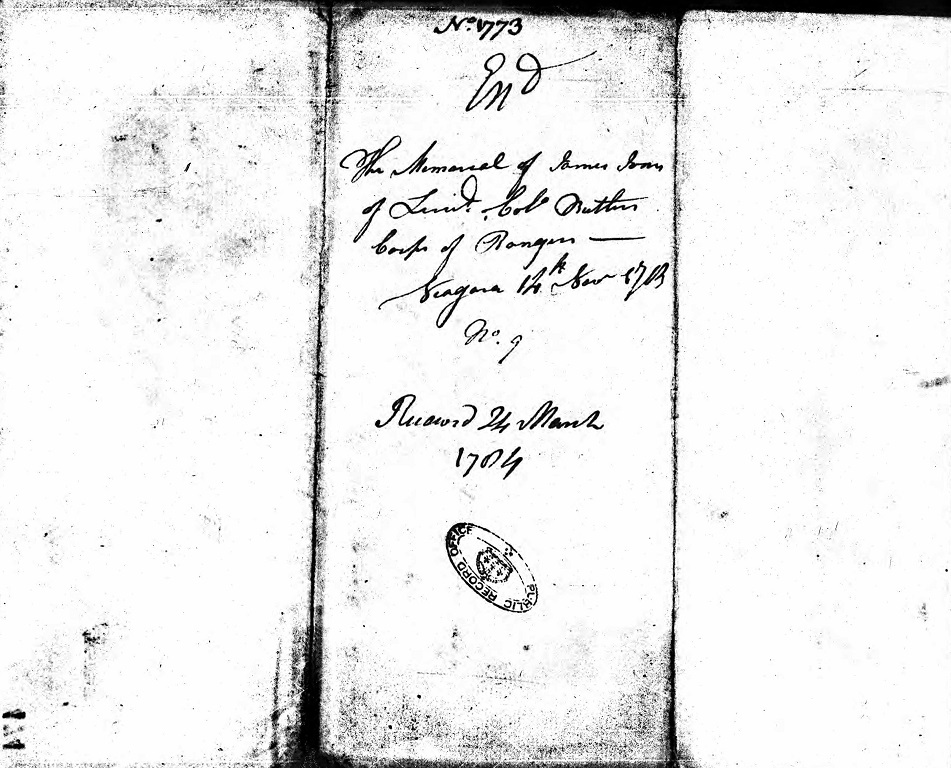 No. 1773
End
The Memorial of James
of Lieut. Col. Butlers
Corps of Rangers —
Niagara 14th Nov 1783
No. 9
Received 24 March
1784
PUBLIC RECORD OFFICE